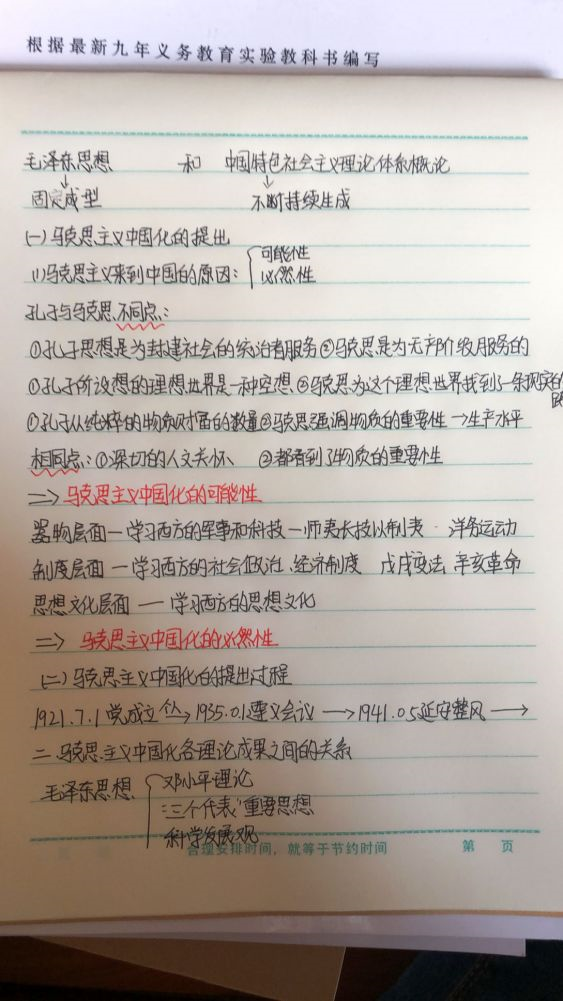 根据最新九年义务教育实验教科书编写
毛泽东思想 和 中国特色社会主义理论体系概论
↓ ↓
固定成型 不断持续生成
(一)马克思主义中国化的提出
(1)马克思主义来到中国的原因: { 可能性
必然性
孔子与马克思不同点:
①孔子思想是为封建社会的统治者服务②马克思是为无产阶级服务的
①孔子所设想的理想世界是一种空想.②马克思为这个理想世界找到了一条现实的
路
①孔子从纯粹的物质财富的数量②马克思强调物质的重要性→生产水平
相同点: ①深切的人文关怀 ②都看到了物质的重要性
=> 马克思主义中国化的可能性
器物层面—学习西方的军事和科技—师夷长技以制夷. 洋务运动
制度层面—学习西方的社会政治、经济制度 戊戌变法 辛亥革命
思想文化层面——学习西方的思想文化
=> 马克思主义中国化的必然性
(二)马克思主义中国化的提出过程
1921.7.1党成立 → 1935.01遵义会议 → 1941.05延安整风 →
二.马克思主义中国化各理论成果之间的关系
毛泽东思想 { 邓小平理论
"三个代表"重要思想
科学发展观
合理安排时间，就等于节约时间 第 页